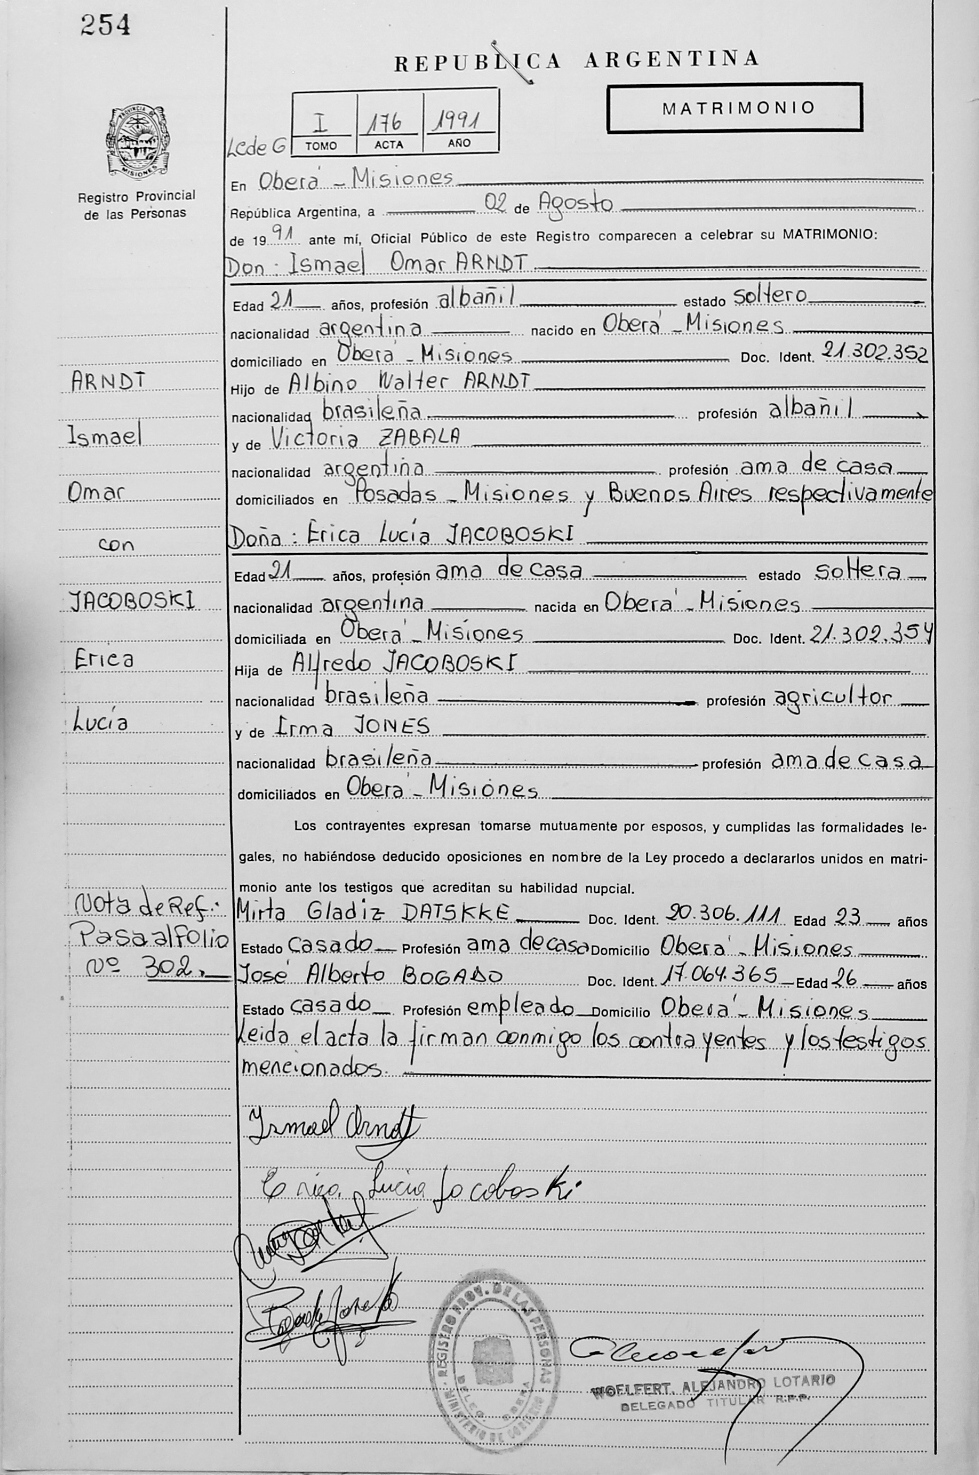 254
REPUBLICA ARGENTINA
MATRIMONIO
I 176 1991
Lcde G TOMO ACTA AÑO
PROVINCIA DE MISIONES
Registro Provincial
de las Personas
En Oberá - Misiones
República Argentina, a 02 de Agosto
de 1991 ante mí, Oficial Público de este Registro comparecen a celebrar su MATRIMONIO:
Don: Ismael Omar ARNDT
Edad 21 años, profesión albañil estado soltero
nacionalidad argentina nacido en Oberá - Misiones
domiciliado en Oberá - Misiones Doc. Ident. 21.302.352
Hijo de Albino Walter ARNDT
nacionalidad brasileña profesión albañil
y de Victoria ZABALA
nacionalidad argentina profesión ama de casa
domiciliados en Posadas - Misiones y Buenos Aires respectivamente
Doña: Erica Lucía JACOBOSKI
Edad 21 años, profesión ama de casa estado soltera
nacionalidad argentina nacida en Oberá - Misiones
domiciliada en Oberá - Misiones Doc. Ident. 21.302.354
Hija de Alfredo JACOBOSKI
nacionalidad brasileña profesión agricultor
y de Irma JONES
nacionalidad brasileña profesión ama de casa
domiciliados en Oberá - Misiones
Los contrayentes expresan tomarse mutuamente por esposos, y cumplidas las formalidades le-
gales, no habiéndose deducido oposiciones en nombre de la Ley procedo a declararlos unidos en matri-
monio ante los testigos que acreditan su habilidad nupcial.
Mirta Gladiz DATSKKE Doc. Ident. 20.306.111 Edad 23 años
Estado Casado Profesión ama de casa Domicilio Oberá - Misiones
José Alberto BOGADO Doc. Ident. 17.064.365 Edad 26 años
Estado casado Profesión empleado Domicilio Oberá - Misiones
Leida el acta la firman conmigo los contrayentes y los testigos
mencionados.
ARNDT
Ismael
Omar
con
JACOBOSKI
Erica
Lucía
Nota de Ref.:
Pasa al folio
Nº 302.
Ismael Arndt
Erica Lucia Jacoboski
REGISTRO PROV. DE LAS PERSONAS
MINISTERIO DE GOBIERNO
WOELFERT, ALEJANDRO LOTARIO
DELEGADO TITULAR R.P.P.